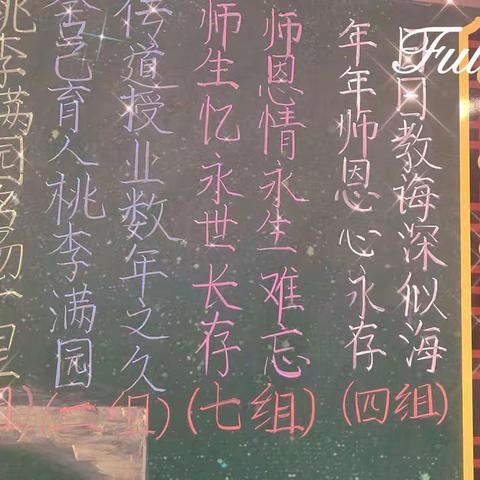 Ful
日日教诲深似海
年年师恩心永存
(四组)
师恩情永生难忘
师生忆永世长存
(七组)
传道授业数年之久
舍己育人桃李满园
(二组)
桃李满园